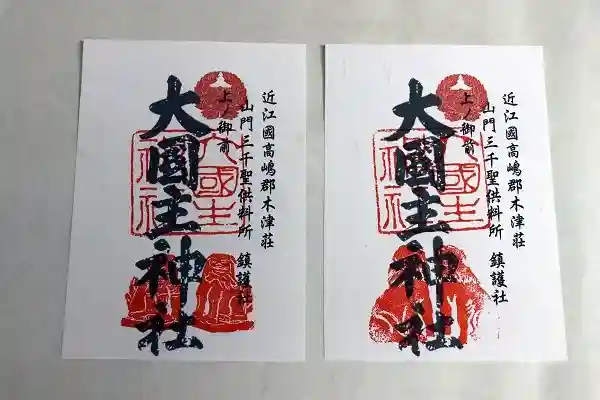 近江國高嶋郡木津荘
山門三千聖供料所 鎮護社
上ノ御前
大國主神社
大國主
神社
近江國高嶋郡木津荘
山門三千聖供料所 鎮護社
上ノ御前
大國主神社
大國主
神社